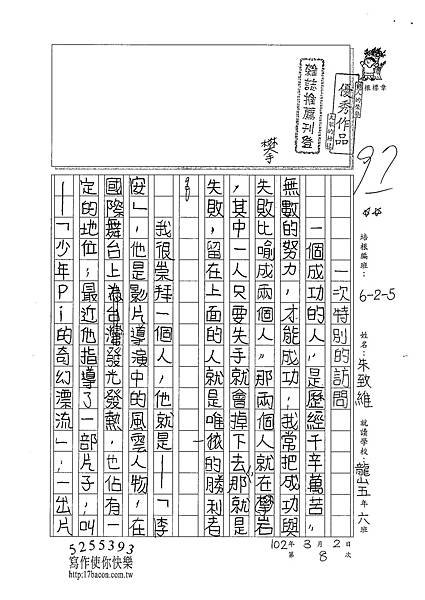 優秀作品
推薦刊登
97
培根編班：6-2-5 姓名：朱致維 就讀學校：龍山五年六班
102年3月2日
第8次
一次特別的訪問
一個成功的人，是歷經千辛萬苦，
無數的努力，才能成功，我常把成功與
失敗比喻成兩個人，那兩個人就在攀岩
，其中一人只要失手就會掉下去那就是
失敗，留在上面的人就是唯一的勝利者
。
我很崇拜一個人，他就是——「李
安」，他是影片導演中的風雲人物，在
國際舞台上為台灣發光發熱，也佔有一
定的地位，最近他指導了一部片子，叫
——「少年Pi的奇幻漂流」，一出片
5255393
寫作使你快樂
http://17bacon.com.tw